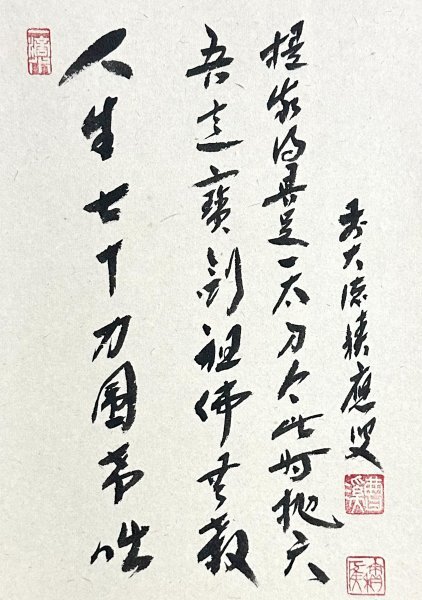 人生七十力圍希咄
吾這寶劍祖佛共殺
提我得具足一太刀今此時抛天
大徳積應叟
曹溪